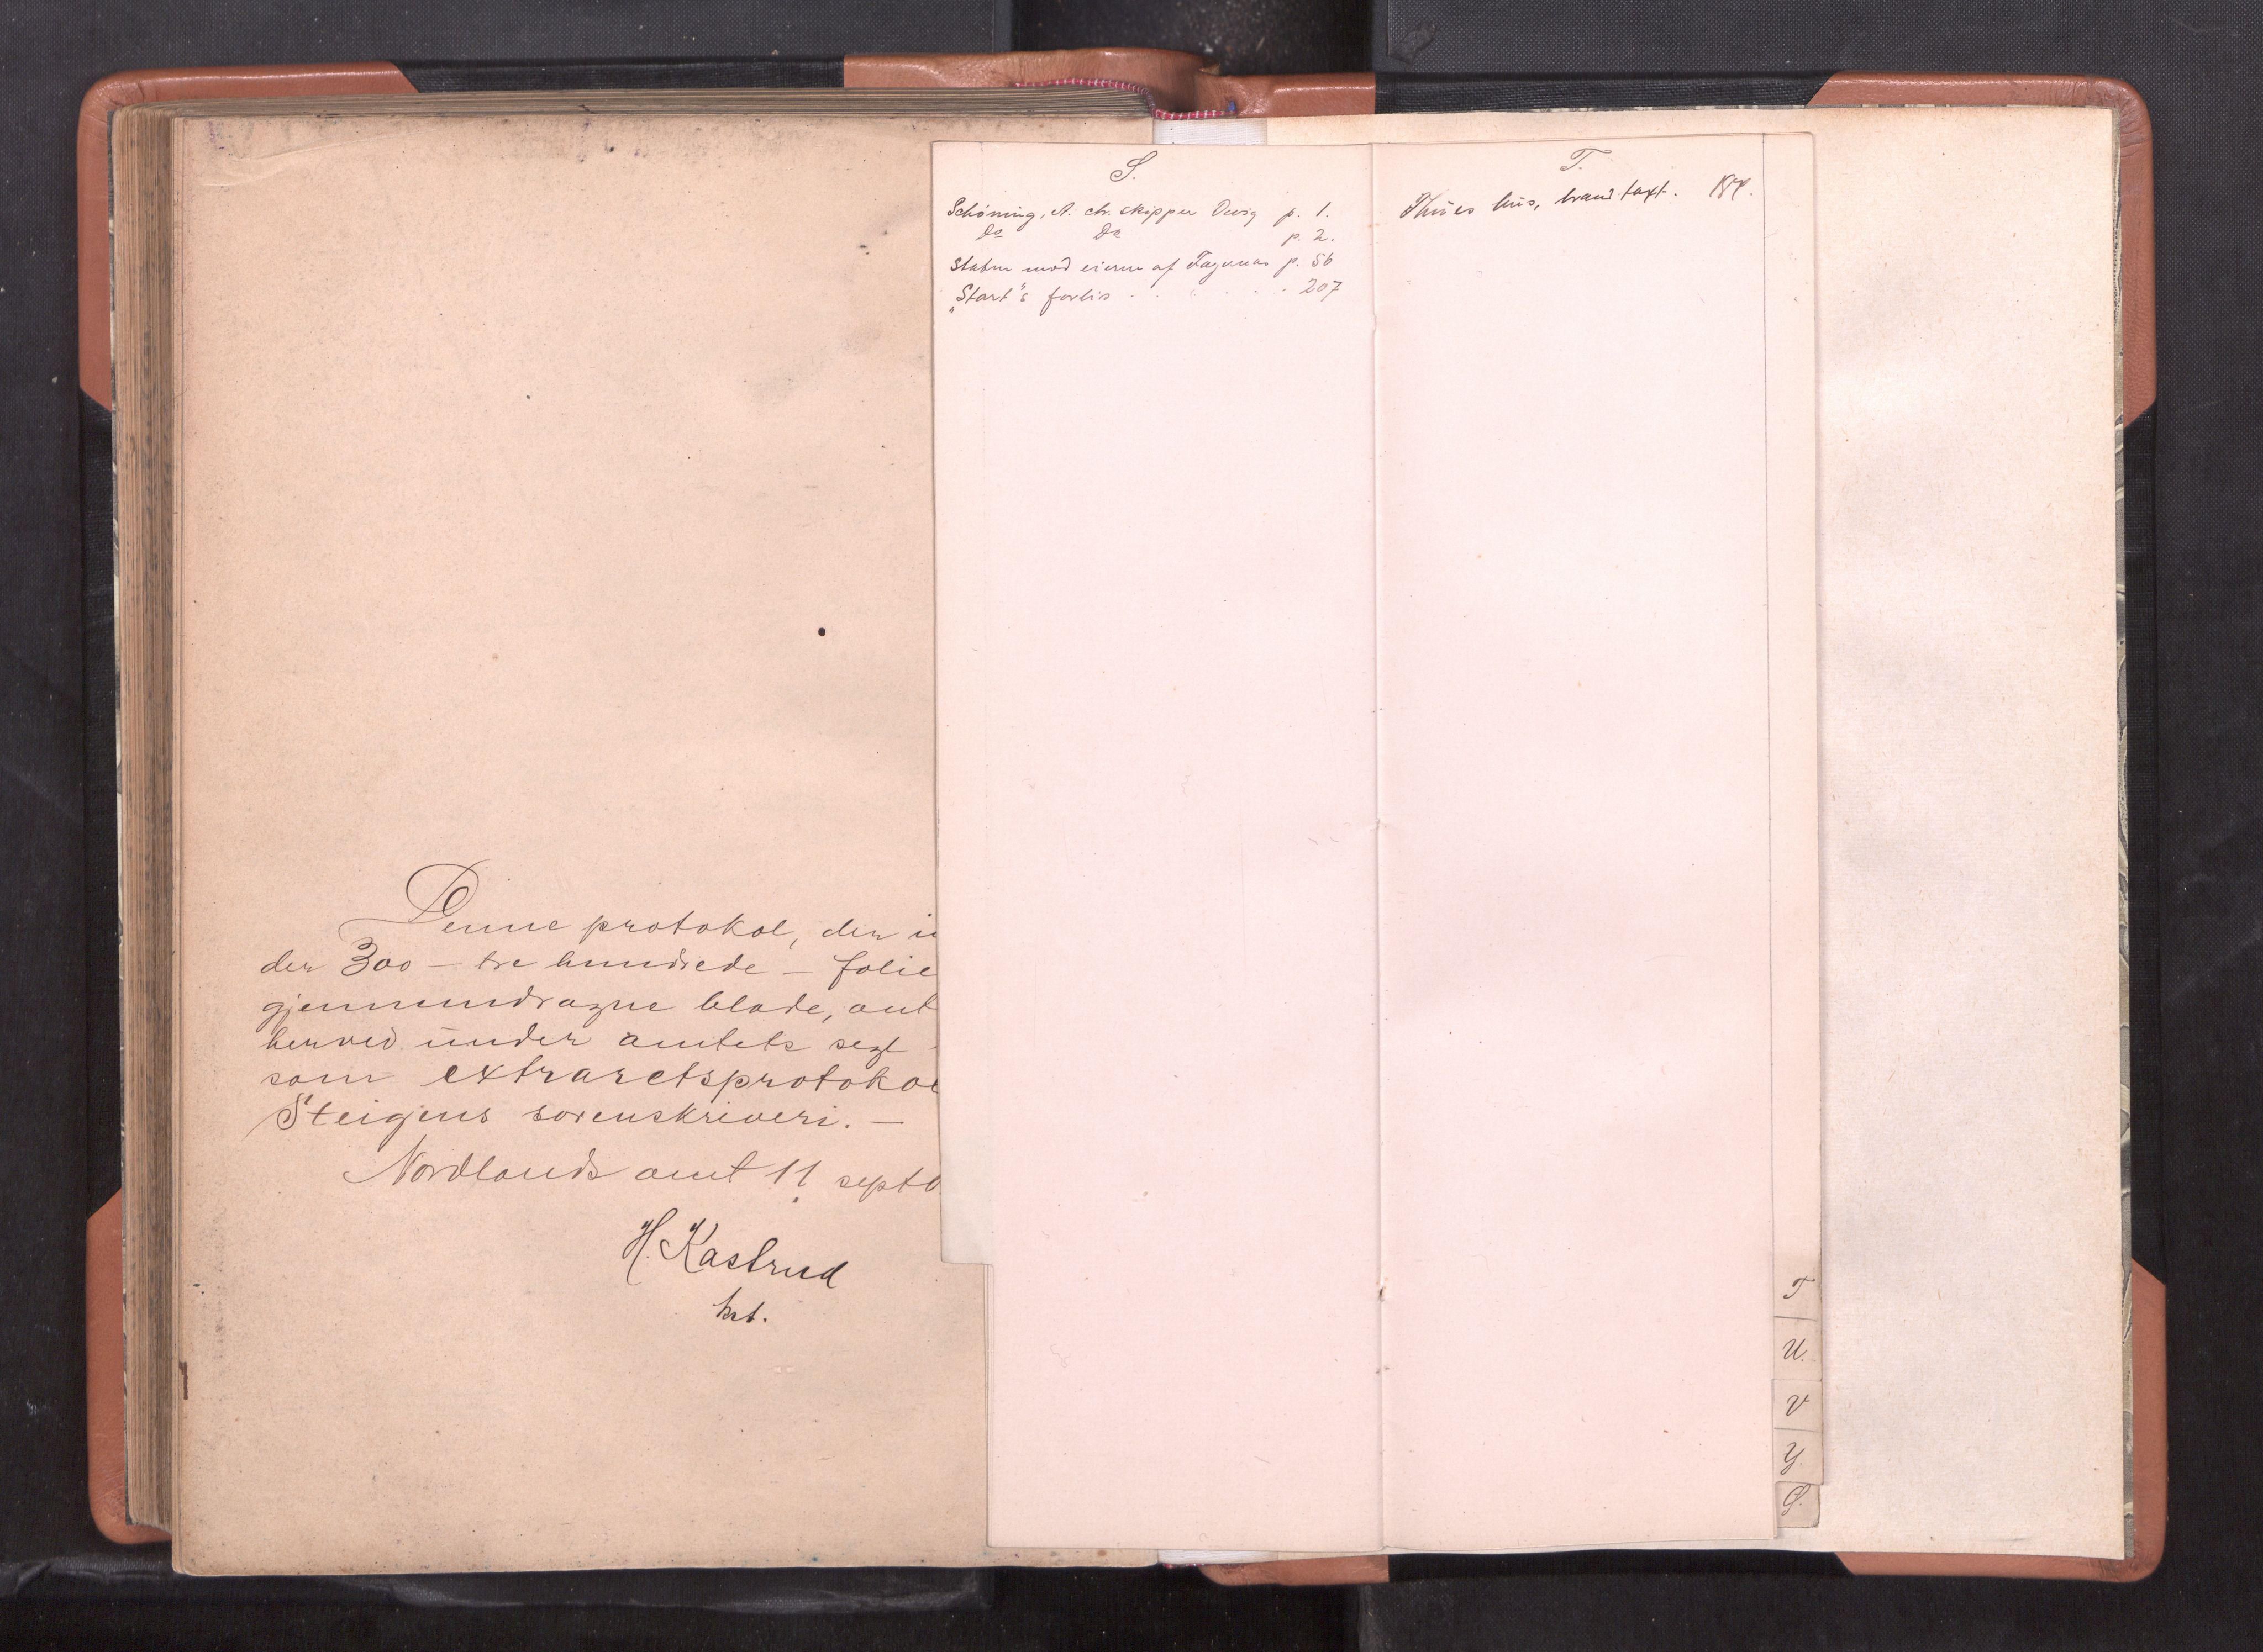 Denne protokol, der i
der 300 – tre hundrede – folie
gjennemdragne blade, aut
herved under amtets segl
som extraretsprotokol
Steigens sorenskriveri. –
Nordlands amt 11 septb
H. Kastrud
kst.
S.
Schöning, A. ctr. skipper p. 1.
Do Do p. 2.
Staten mod eierne af p. 56
„Start"s forlis . . . . . . 207
T.
Thües hus, brandtaxt.
T
U.
V
Y.